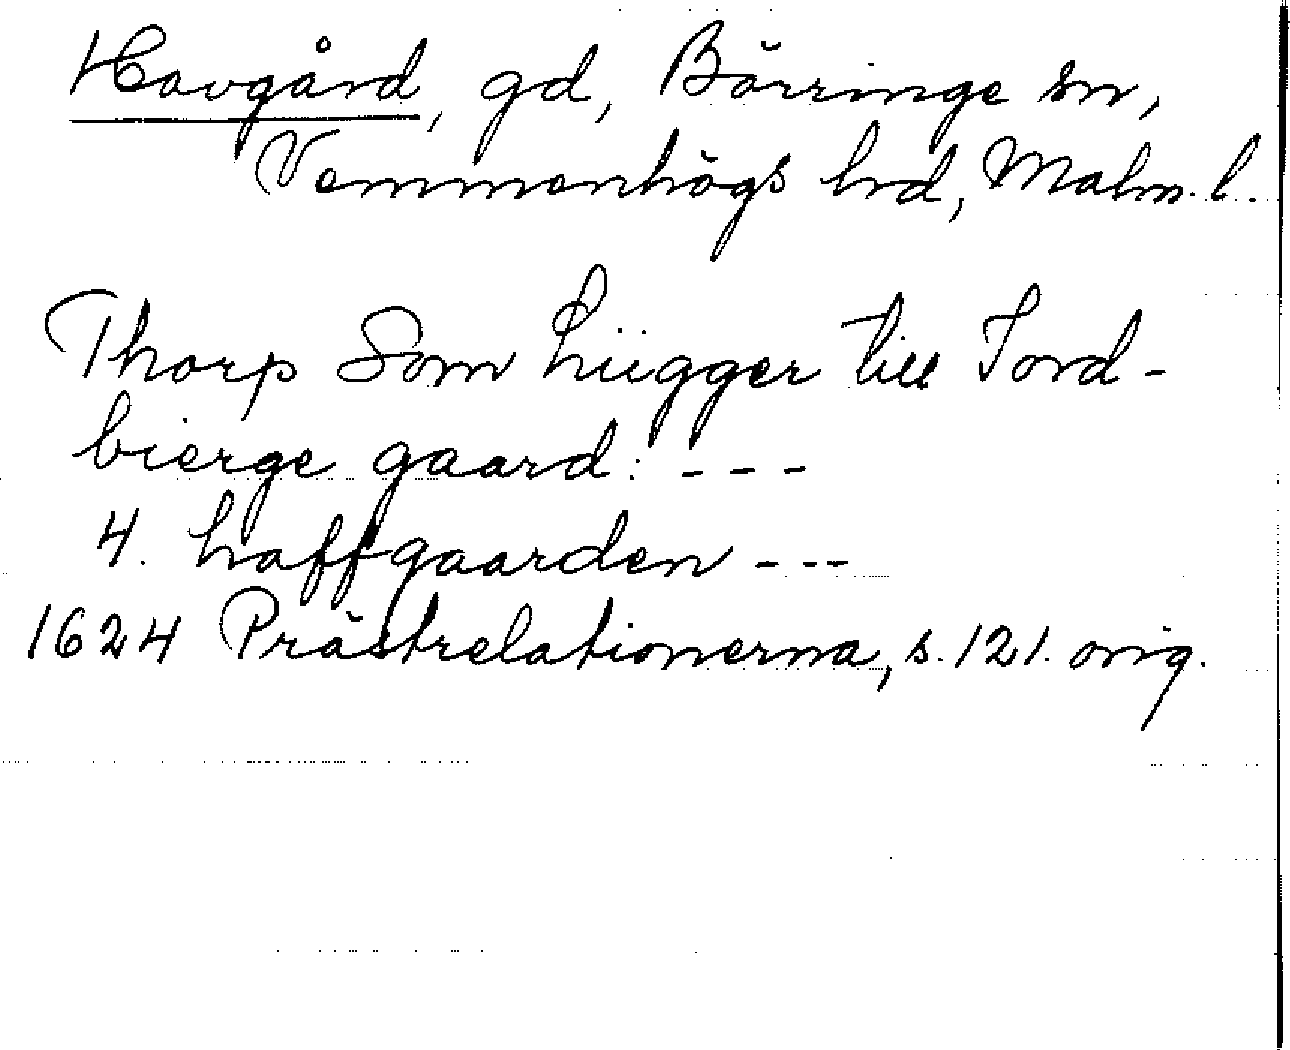 Havgård, gd, Börringe sn,
Vemmenhögs hrd, Malm. l.
Thorp Som Liigger till Tord-
bierge gaard: ---
4. haffgaarden ---
1624 Prästrelationerna, s. 121. orig.